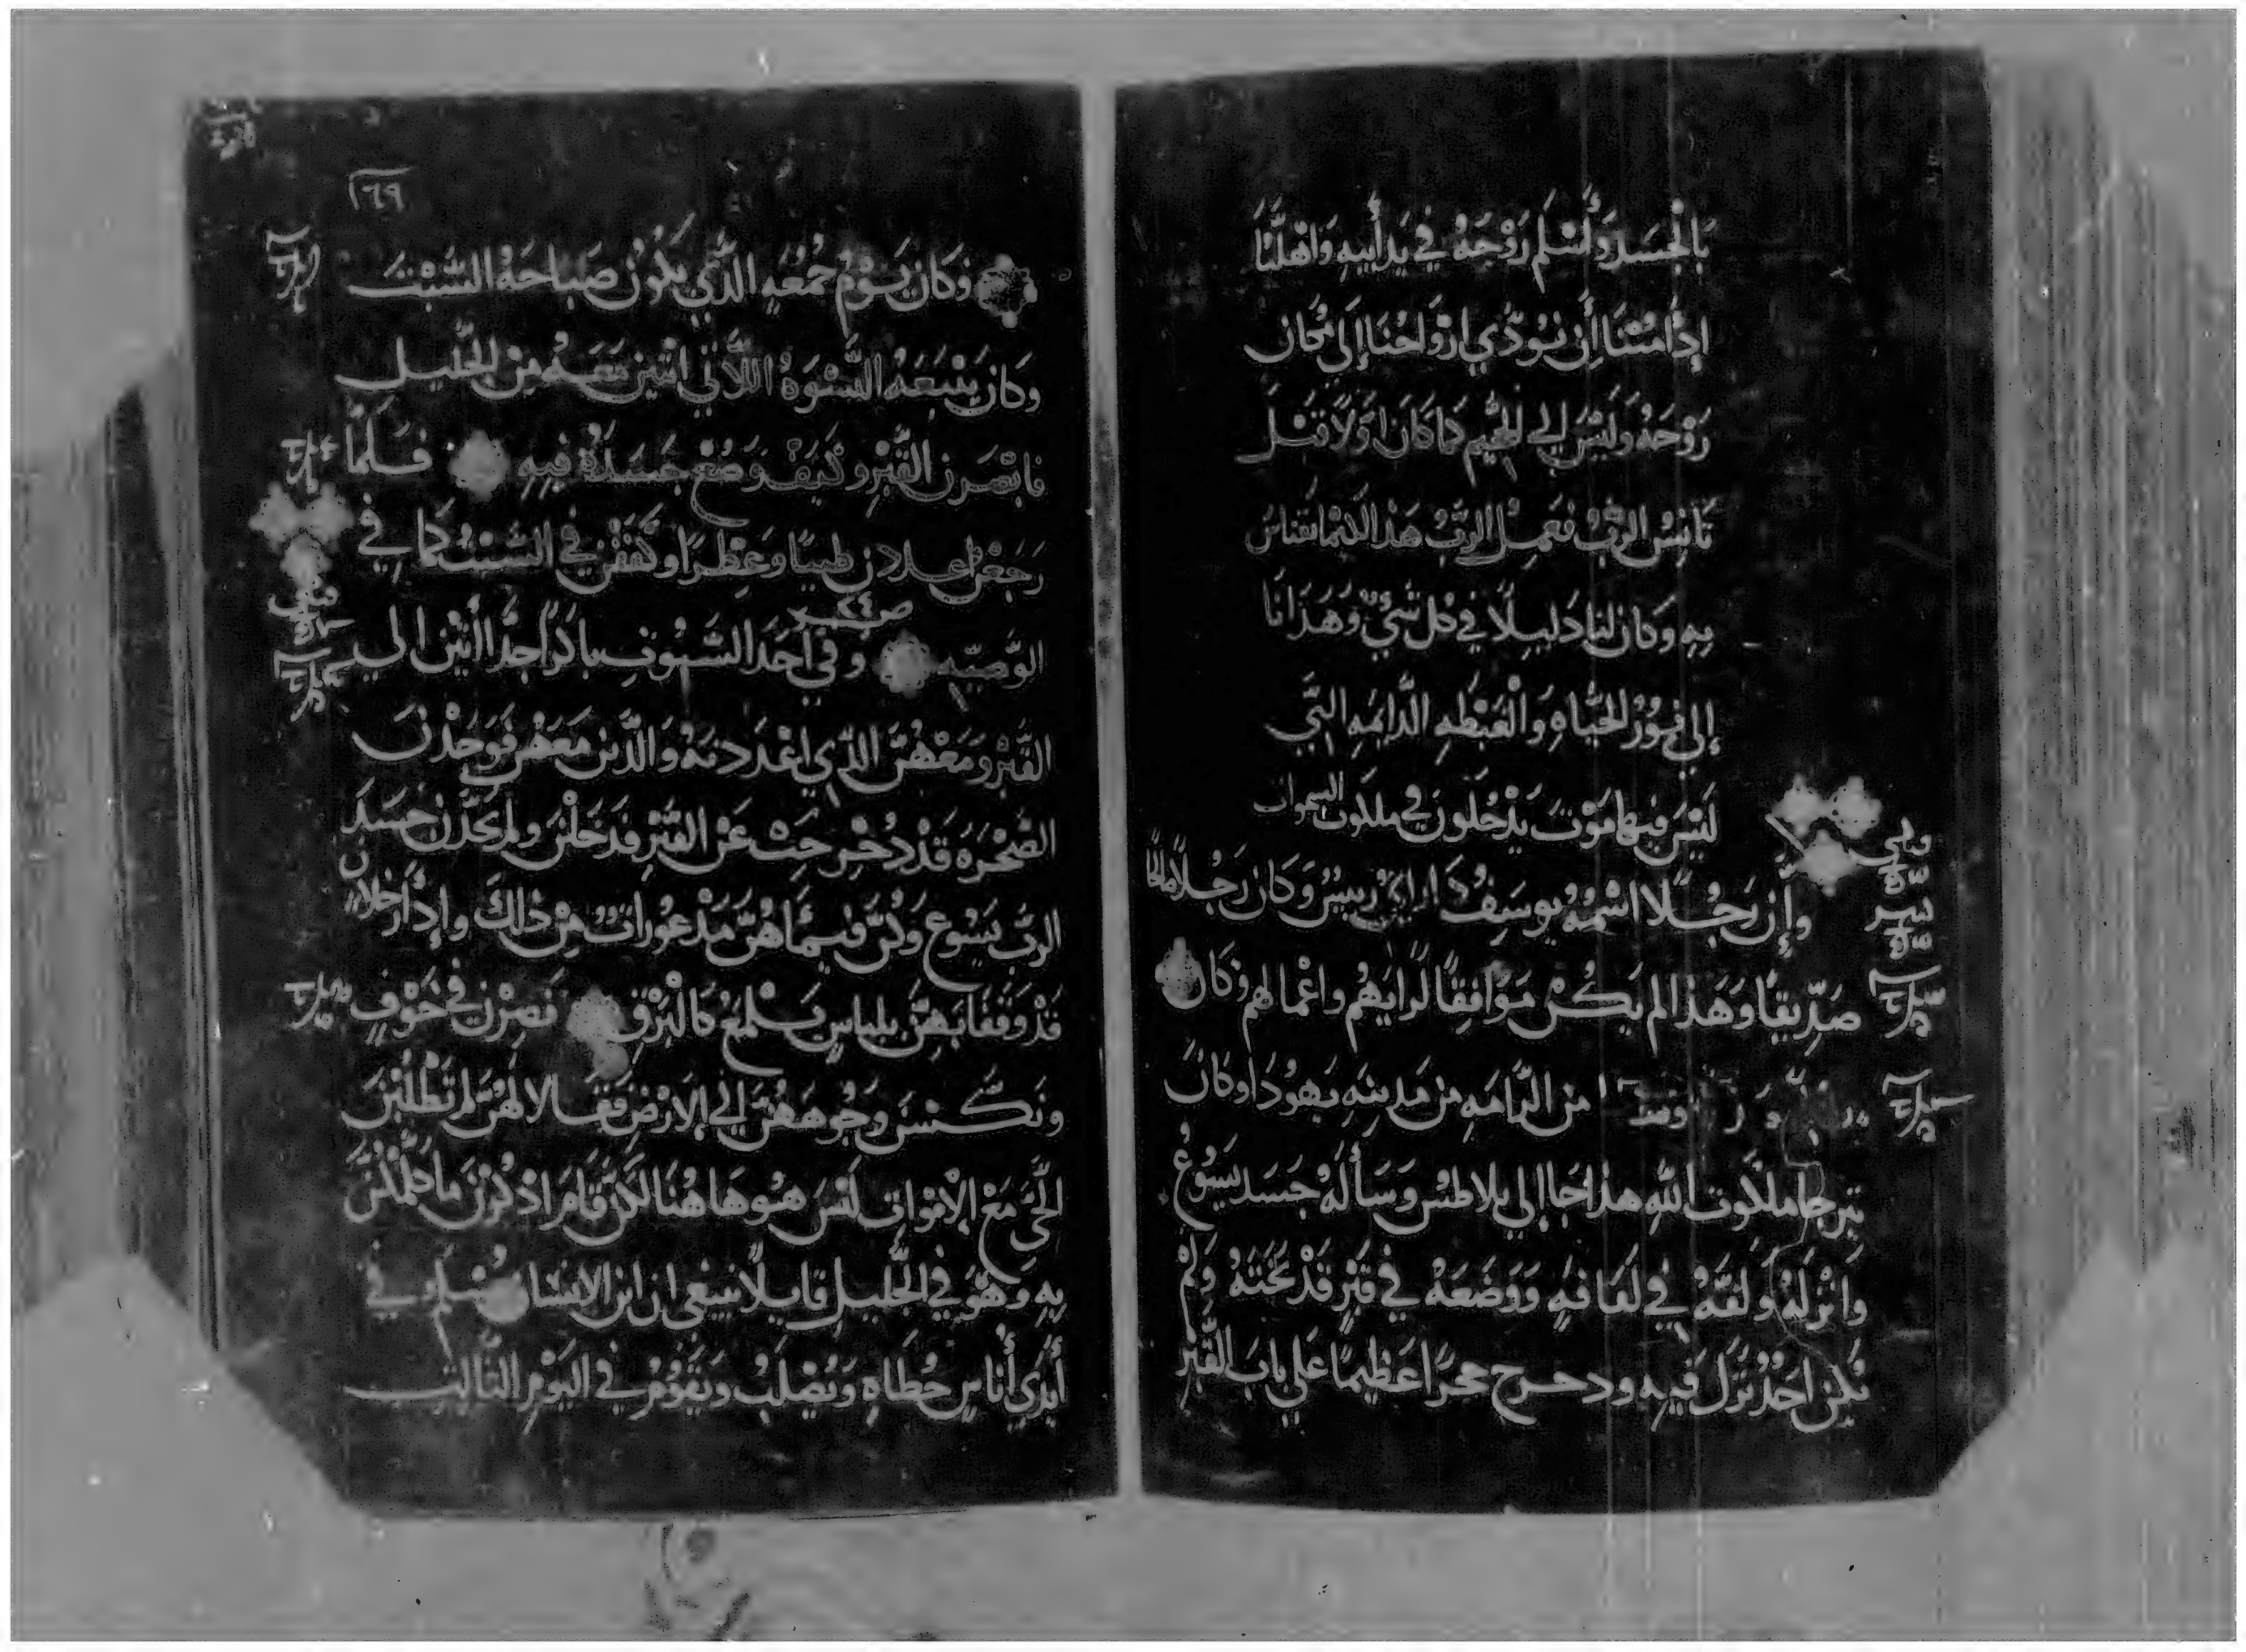 بالجسد وأسلم روحه في يد أبيه واهلنا
إذا متنا أن نودي ارواحنا إلى مكان
روحه وليس الي الجحيم كما كان اولا قبل
تانس الرب فعمل الرب هذا
به وكان لنا دليلا في كل شي وهدانا
إلى نور الحياه والغبطه الدايمه التي
ليس فيها موت يدخلون في ملكوت السموات
وإن رجلا اسمه يوسف كان رجلا صالحا
صديقا وهذا لم يكن موافقا لرايهم واعمالهم وكان
من الرامه من مدينه يهودا وكان
يترجا ملكوت الله هذا جا إلي بلاطس وسأله جسد يسوع
وانزله ولفه في لفافه ووضعه في قبر قد نحته ولم
يكن احد نزل فيه ودحرج حجرا عظيما علي باب القبر
١٦٩
وكان يوم جمعه الذي يكون صباحه السبت
وكان يتبعه النسوه اللاتي اتين معه من الجليل
فابصرن القبر وكيف وضع جسده فيه فلما
رجعن اعددن طيبا وعطرا وكففن في السبت كما في
الوصيه وفي احد السبوت باكرا جدا اتين الي
القبر ومعهن الذي اعددنه والذين معهن فوجدن
الصخره قد دحرجت عن القبر فدخلن ولم يجدن جسد
الرب يسوع وكن فيما هن مذعورات من ذلك وإذا رجلان
قد وقفا بهن بلباس يلمع كالبرق فصرن في خوف
ونكسن وجوههن الي الارض فقالا لهن لم تطلبن
الحي مع الاموات ليس هو هاهنا لكن قام اذكرن ما كلمكن
به وهو في الجليل قايلا ينبغي ان ابن الانسان يسلم في
أيدي أناس خطاه ويصلب ويقوم في اليوم الثالث